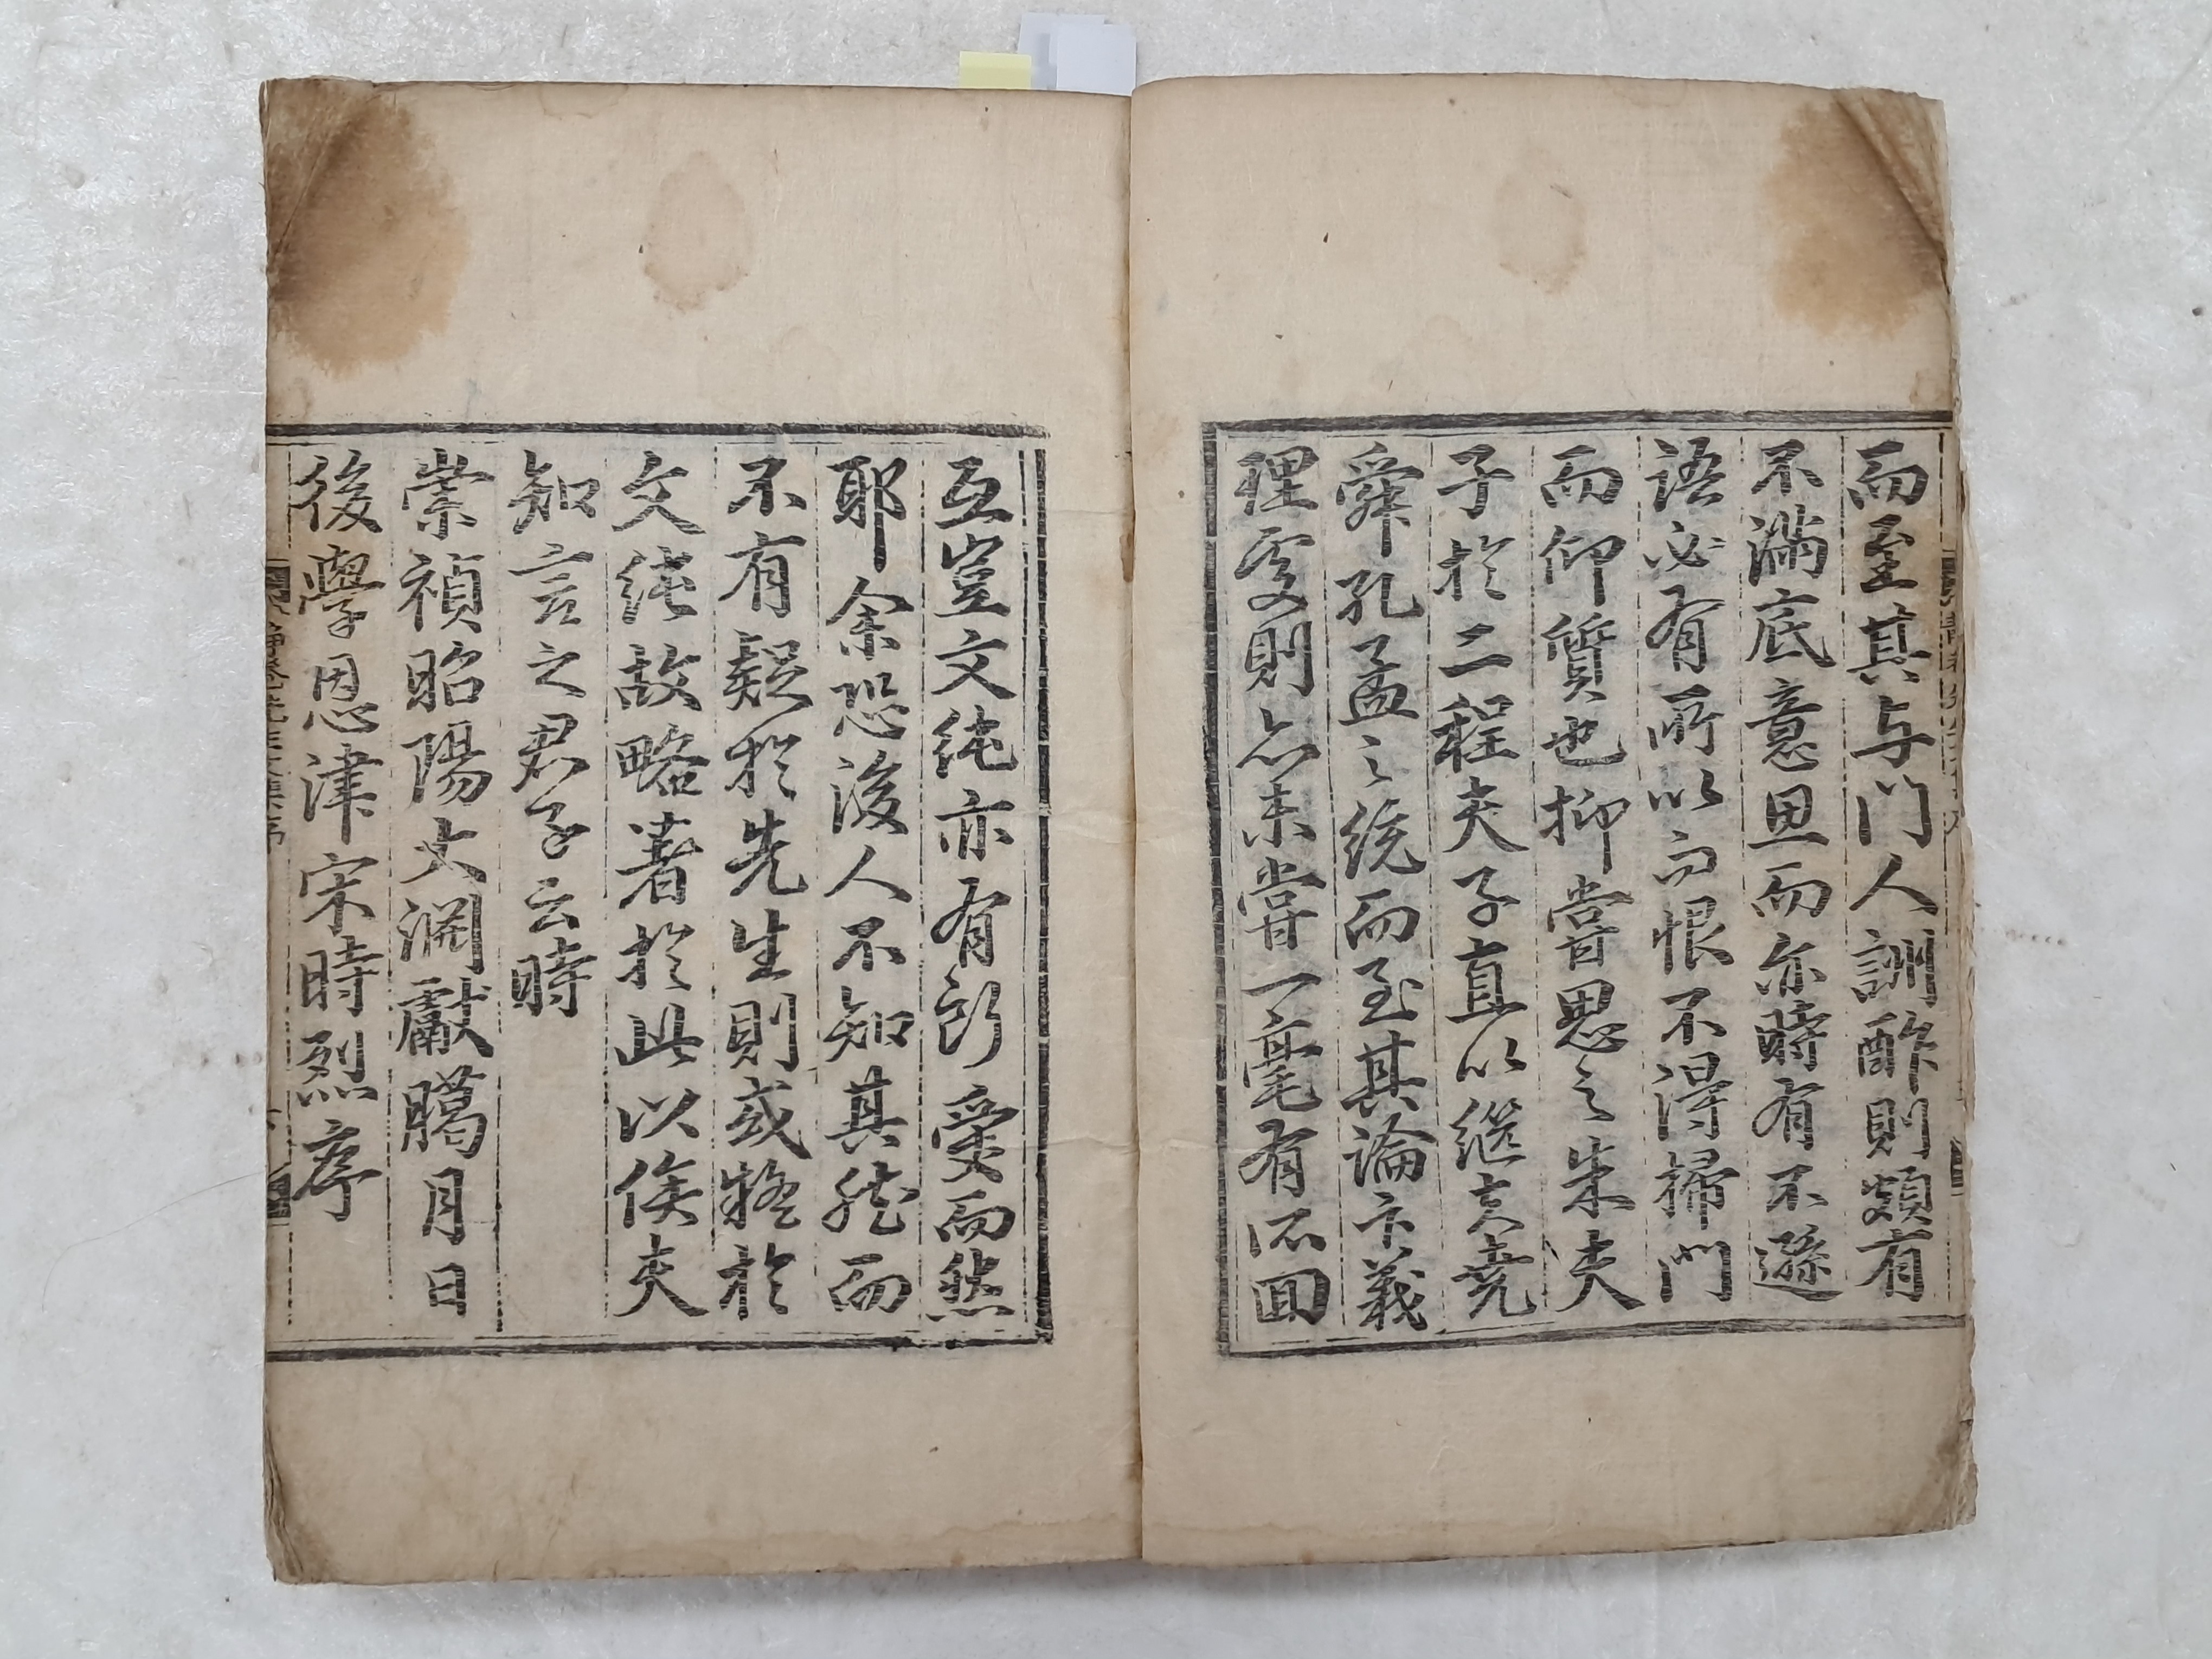 而至其与门人訓酢則頗有
不滿底意思而亦時有不遜
語必有所以而恨不得掃門
而仰質也抑嘗思之朱夫
子於二程夫子直以繼夫堯
舜孔孟之統而至其論卞義
理處則亦未嘗一毫有不回
互豈文純亦有所受而然
耶余恐後人不知其然而
不有疑於先生則或疑於
文純故略著於此以俟夫
知言之君子云時
崇禎昭陽大淵獻臈月日
後學恩津宋時烈序